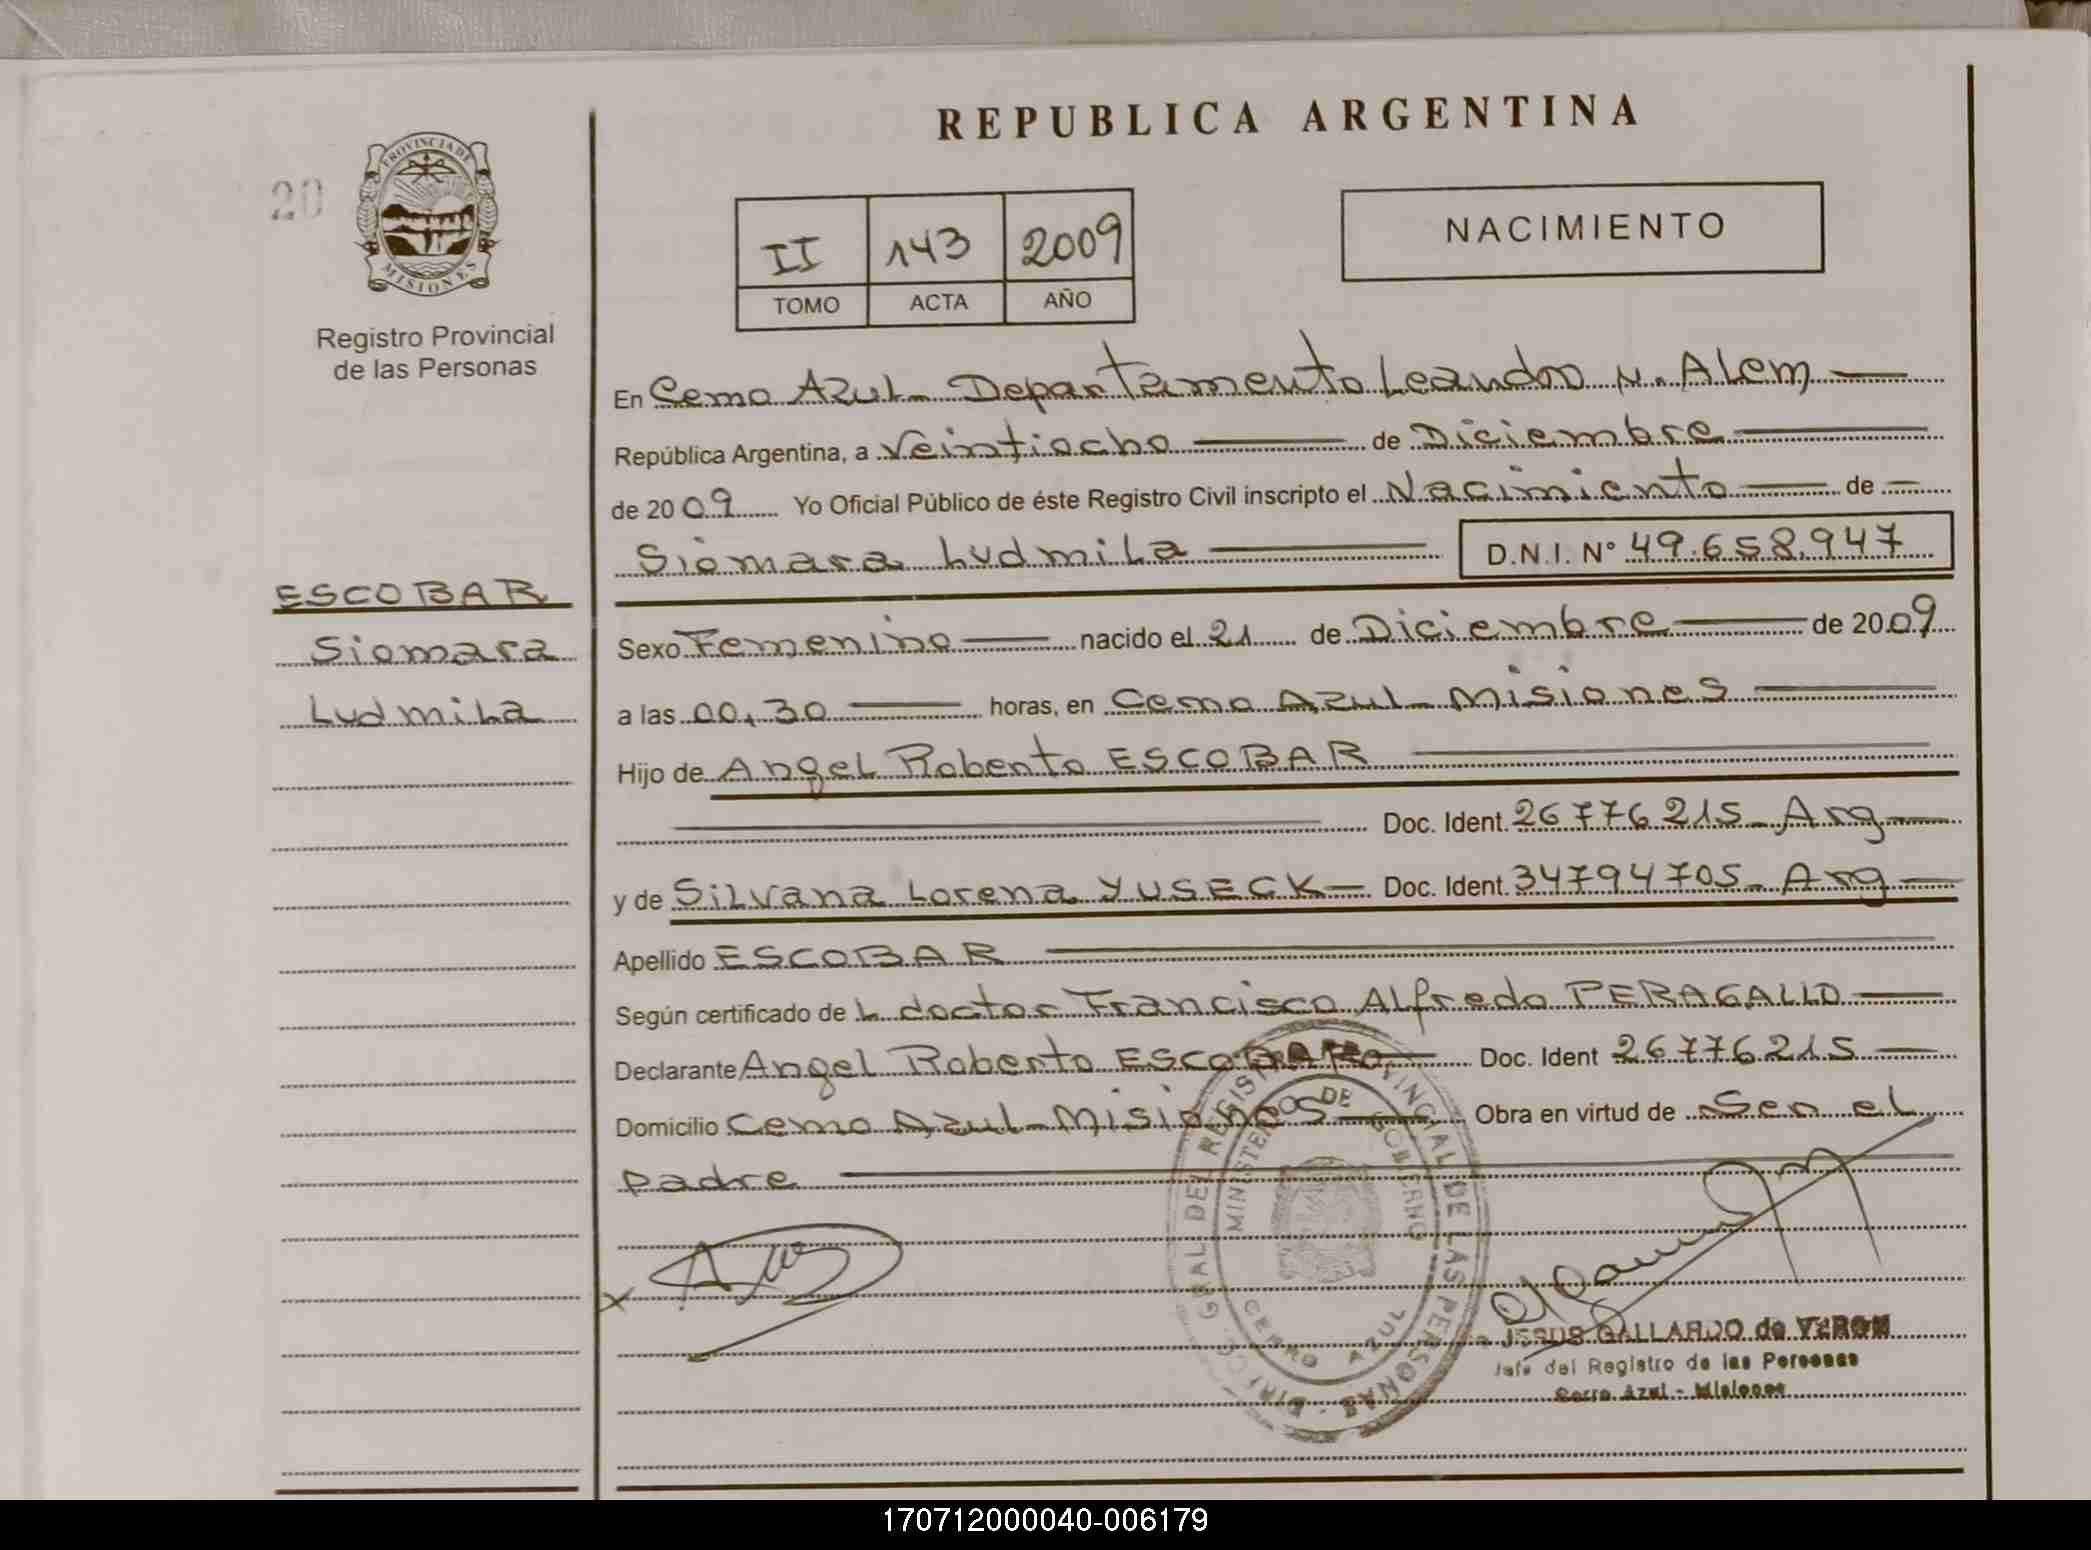 REPUBLICA ARGENTINA
20
PROVINCIA DE
MISIONES
Registro Provincial
de las Personas
II 143 2009
TOMO ACTA AÑO
NACIMIENTO
En Cerro Azul - Departamento Leandro N. Alem
República Argentina, a Veintiocho de Diciembre
de 2009 Yo Oficial Público de éste Registro Civil inscripto el Nacimiento de
Siomara Ludmila D.N.I. Nº 49.658.947
ESCOBAR
Siomara
Ludmila
Sexo Femenino nacido el 21 de Diciembre de 2009
a las 00,30 horas, en Cerro Azul - Misiones
Hijo de Angel Roberto ESCOBAR
Doc. Ident. 26776215 - Arg
y de Silvana Lorena YUSECK Doc. Ident. 34794705 - Arg
Apellido ESCOBAR
Según certificado de L doctor Francisco Alfredo PERAGALLO
Declarante Angel Roberto ESCOBAR Doc. Ident 26776215
Domicilio Cerro Azul - Misiones Obra en virtud de Ser el
padre
GRAL DEL REGISTRO PROVINCIAL DE LAS PERSONAS
MINISTERIO DE GOBIERNO
CERRO AZUL
x
JESUS GALLARDO de VERON
Jefe del Registro de las Personas
Cerro Azul - Misiones
170712000040-006179